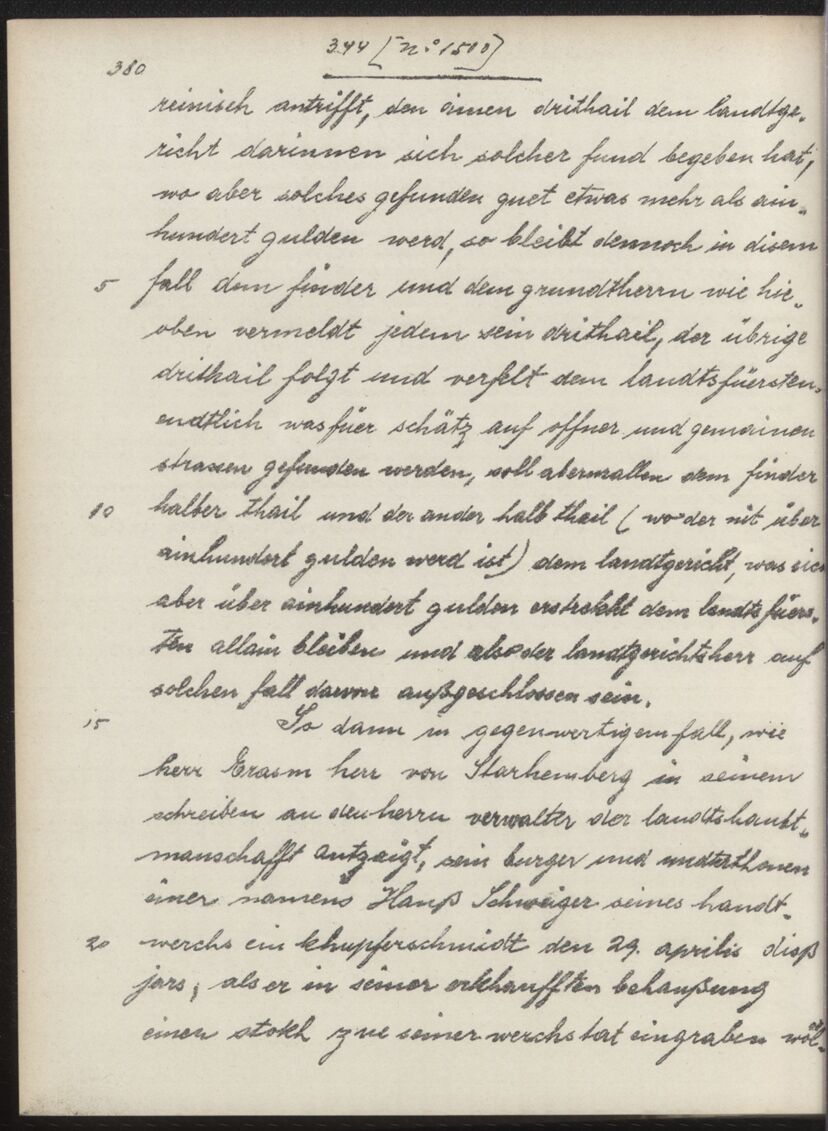 344 [n:o 1500]
380
reinisch antrifft, den ainen drithail dem landtge„
richt darinnen sich solcher fund begeben hat,
wo aber solches gefunden guet etwas mehr als ain„
hundert gulden werd, so bleibt dennoch in disem
5 fall dem finder und dem grundtherrn wie hie„
oben vermeldt jedem sein drithail, der übrige
drithail folgt und verfelt dem landtsfüersten.
endtlich was für schätz auf offner und gemainen
strassen gefunden werden, soll abermallen dem finder
10 halber thail und der ander halb theil (wo der nit über
ainhundert gulden werd ist) dem landtgericht, was sich
aber über ainhundert gulden erstrekht dem landtsfüers„
ten allain bleiben und also der landtgerichtsherr auf
solchen fall darvor außgeschlossen sein.
15 So dann in gegenwertigem fall, wie
herr Erasm herr von Starhemberg in seinem
schreiben an den herrn verwalter der landtshaubt„
manschafft antzaigt, sein burger und undterthonen
einer namens Hanß Schweiger seines handt„
20 werchs ein khupferschmidt den 29. aprilis diß
jars, als er in seiner erkhaufften behaußung
einen stokh zue seiner werchstat eingraben wöl„